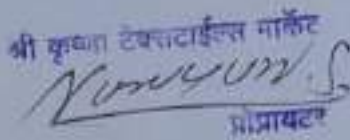 श्री कृष्णा टेक्सटाईल्स मार्केट
प्रोप्रायटर